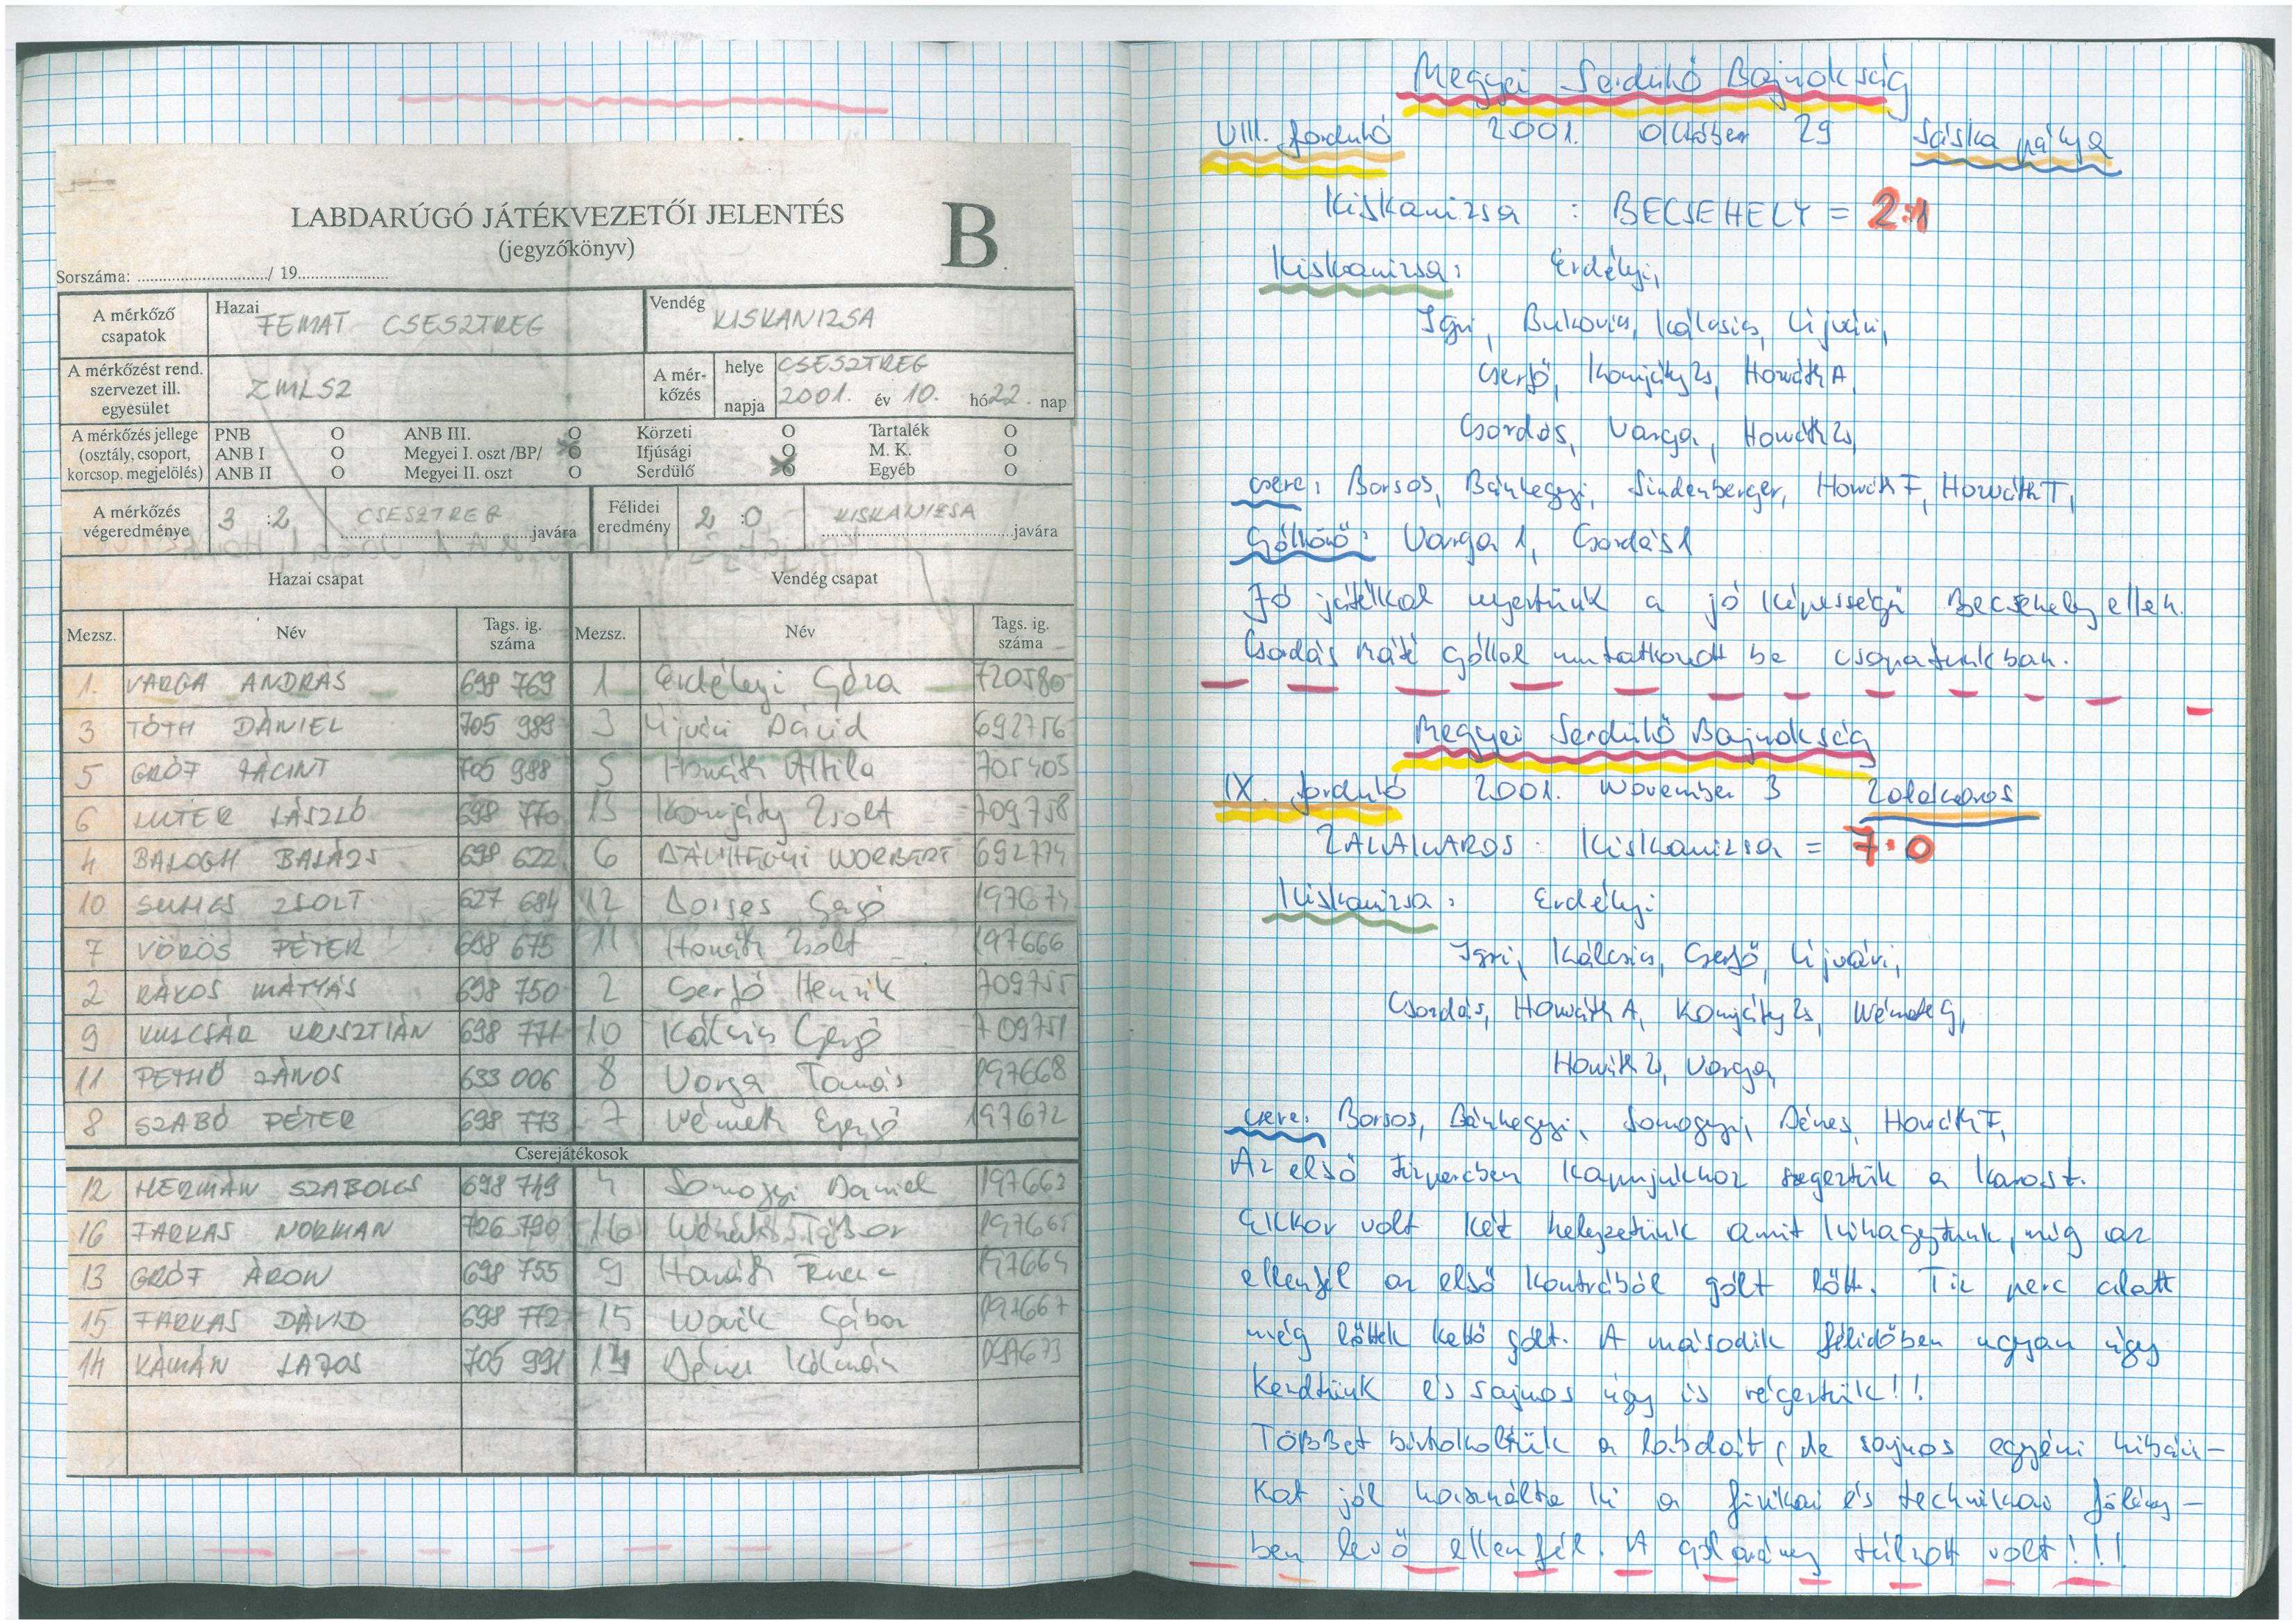 LABDARÚGÓ JÁTÉKVEZETŐI JELENTÉS
(jegyzőkönyv)
B
Sorszáma: ............................../ 19.....................
A mérkőző csapatok
Hazai FEMAT CSESZTREG
Vendég KISKANIZSA
A mérkőzést rend. szervezet ill. egyesület
ZMLSZ
A mérkőzés helye CSESZTREG
napja 2001. év 10. hó 22. nap
A mérkőzés jellege (osztály, csoport, korcsop. megjelölés)
PNB O ANB III. O Körzeti O Tartalék O
ANB I O Megyei I. oszt /BP/ O Ifjúsági O M. K. O
ANB II O Megyei II. oszt O Serdülő O Egyéb O
A mérkőzés végeredménye 3 :2 CSESZTREG javára
Félidei eredmény 2 :0 KISKANIZSA javára
Hazai csapat Vendég csapat
Mezsz. Név Tags. ig. száma Mezsz. Név Tags. ig. száma
1. VARGA ANDRÁS 698 769 1 Erdélyi Géza 720580
3 TÓTH DÁNIEL 705 989 3 Újvári Dávid 692756
5 GRÓF JÁCINT 705 988 5 Horváth Attila 705405
6 LUTER LÁSZLÓ 698 770 13 Komjáty Zsolt 709758
4 BALOGH BALÁZS 698 622 6 BÁNHEGYI NORBERT 692774
10 ZSOLT 627 684 12 Borsos Gergő 197674
7 VÖRÖS PÉTER 698 675 11 Horváth Zsolt 197666
2 RÁKOS MÁTYÁS 698 750 2 Cserfő Henrik 709755
9 KULCSÁR KRISZTIÁN 698 771 10 Kálcsics Gergő 709751
11 PETHŐ JÁNOS 633 006 8 Varga Tamás 197668
8 SZABÓ PÉTER 698 773 7 Németh Gergő 197672
Cserejátékosok
12 HERMÁN SZABOLCS 698 749 4 Somogyi Dániel 197663
16 FARKAS NORMAN 706 790 16 197665
13 GRÓF ÁRON 698 755 9 Horváth Ferenc 197664
15 FARKAS DÁVID 698 772 15 Gábor 197667
14 KÁMÁN LAJOS 705 991 14 Dénes Kálmán 197673
Megyei Serdülő Bajnokság
VIII. forduló 2001. október 29 Sáska pálya
Kiskanizsa : BECSEHELY = 2:1
Kiskanizsa: Erdélyi,
Igri, Bukovics, Kálcsics, Újvári,
Cserfő, Komjáty Zs, Horváth A,
Csordás, Varga, Horváth Zs,
csere: Borsos, Bánhegyi, Lindenberger, Horváth F, Horváth T,
Góllövő: Varga 1, Csordás 1
Jó játékkal nyertünk a jó képességű Becsehely ellen.
Csordás Máté góllal mutatkozott be csapatunkban.
Megyei Serdülő Bajnokság
IX. forduló 2001. November 3 Zalakaros
ZALAKAROS : Kiskanizsa = 7:0
Kiskanizsa: Erdélyi
Igri, Kálcsics, Cserfő, Újvári,
Csordás, Horváth A, Komjáty Zs, Németh G,
Horváth Zs, Varga,
csere: Borsos, Bánhegyi, Somogyi, Dénes, Horváth F,
Az első tizpercben kapujukhoz szegeztük a Karost.
Ekkor volt két helyzetünk amit kihagytunk, mig az
ellenfél az első kontrából gólt lőtt. Tíz perc alatt
még lőttek kettő gólt. A második félidőben ugyan úgy
kezdtünk és sajnos úgy is végeztük!!
Többet birtokoltuk a labdát, de sajnos egyéni hibáin-
kat jól használta ki a fizikai és technikai fölény-
ben levő ellenfél. A gólarány túlzott volt!!!